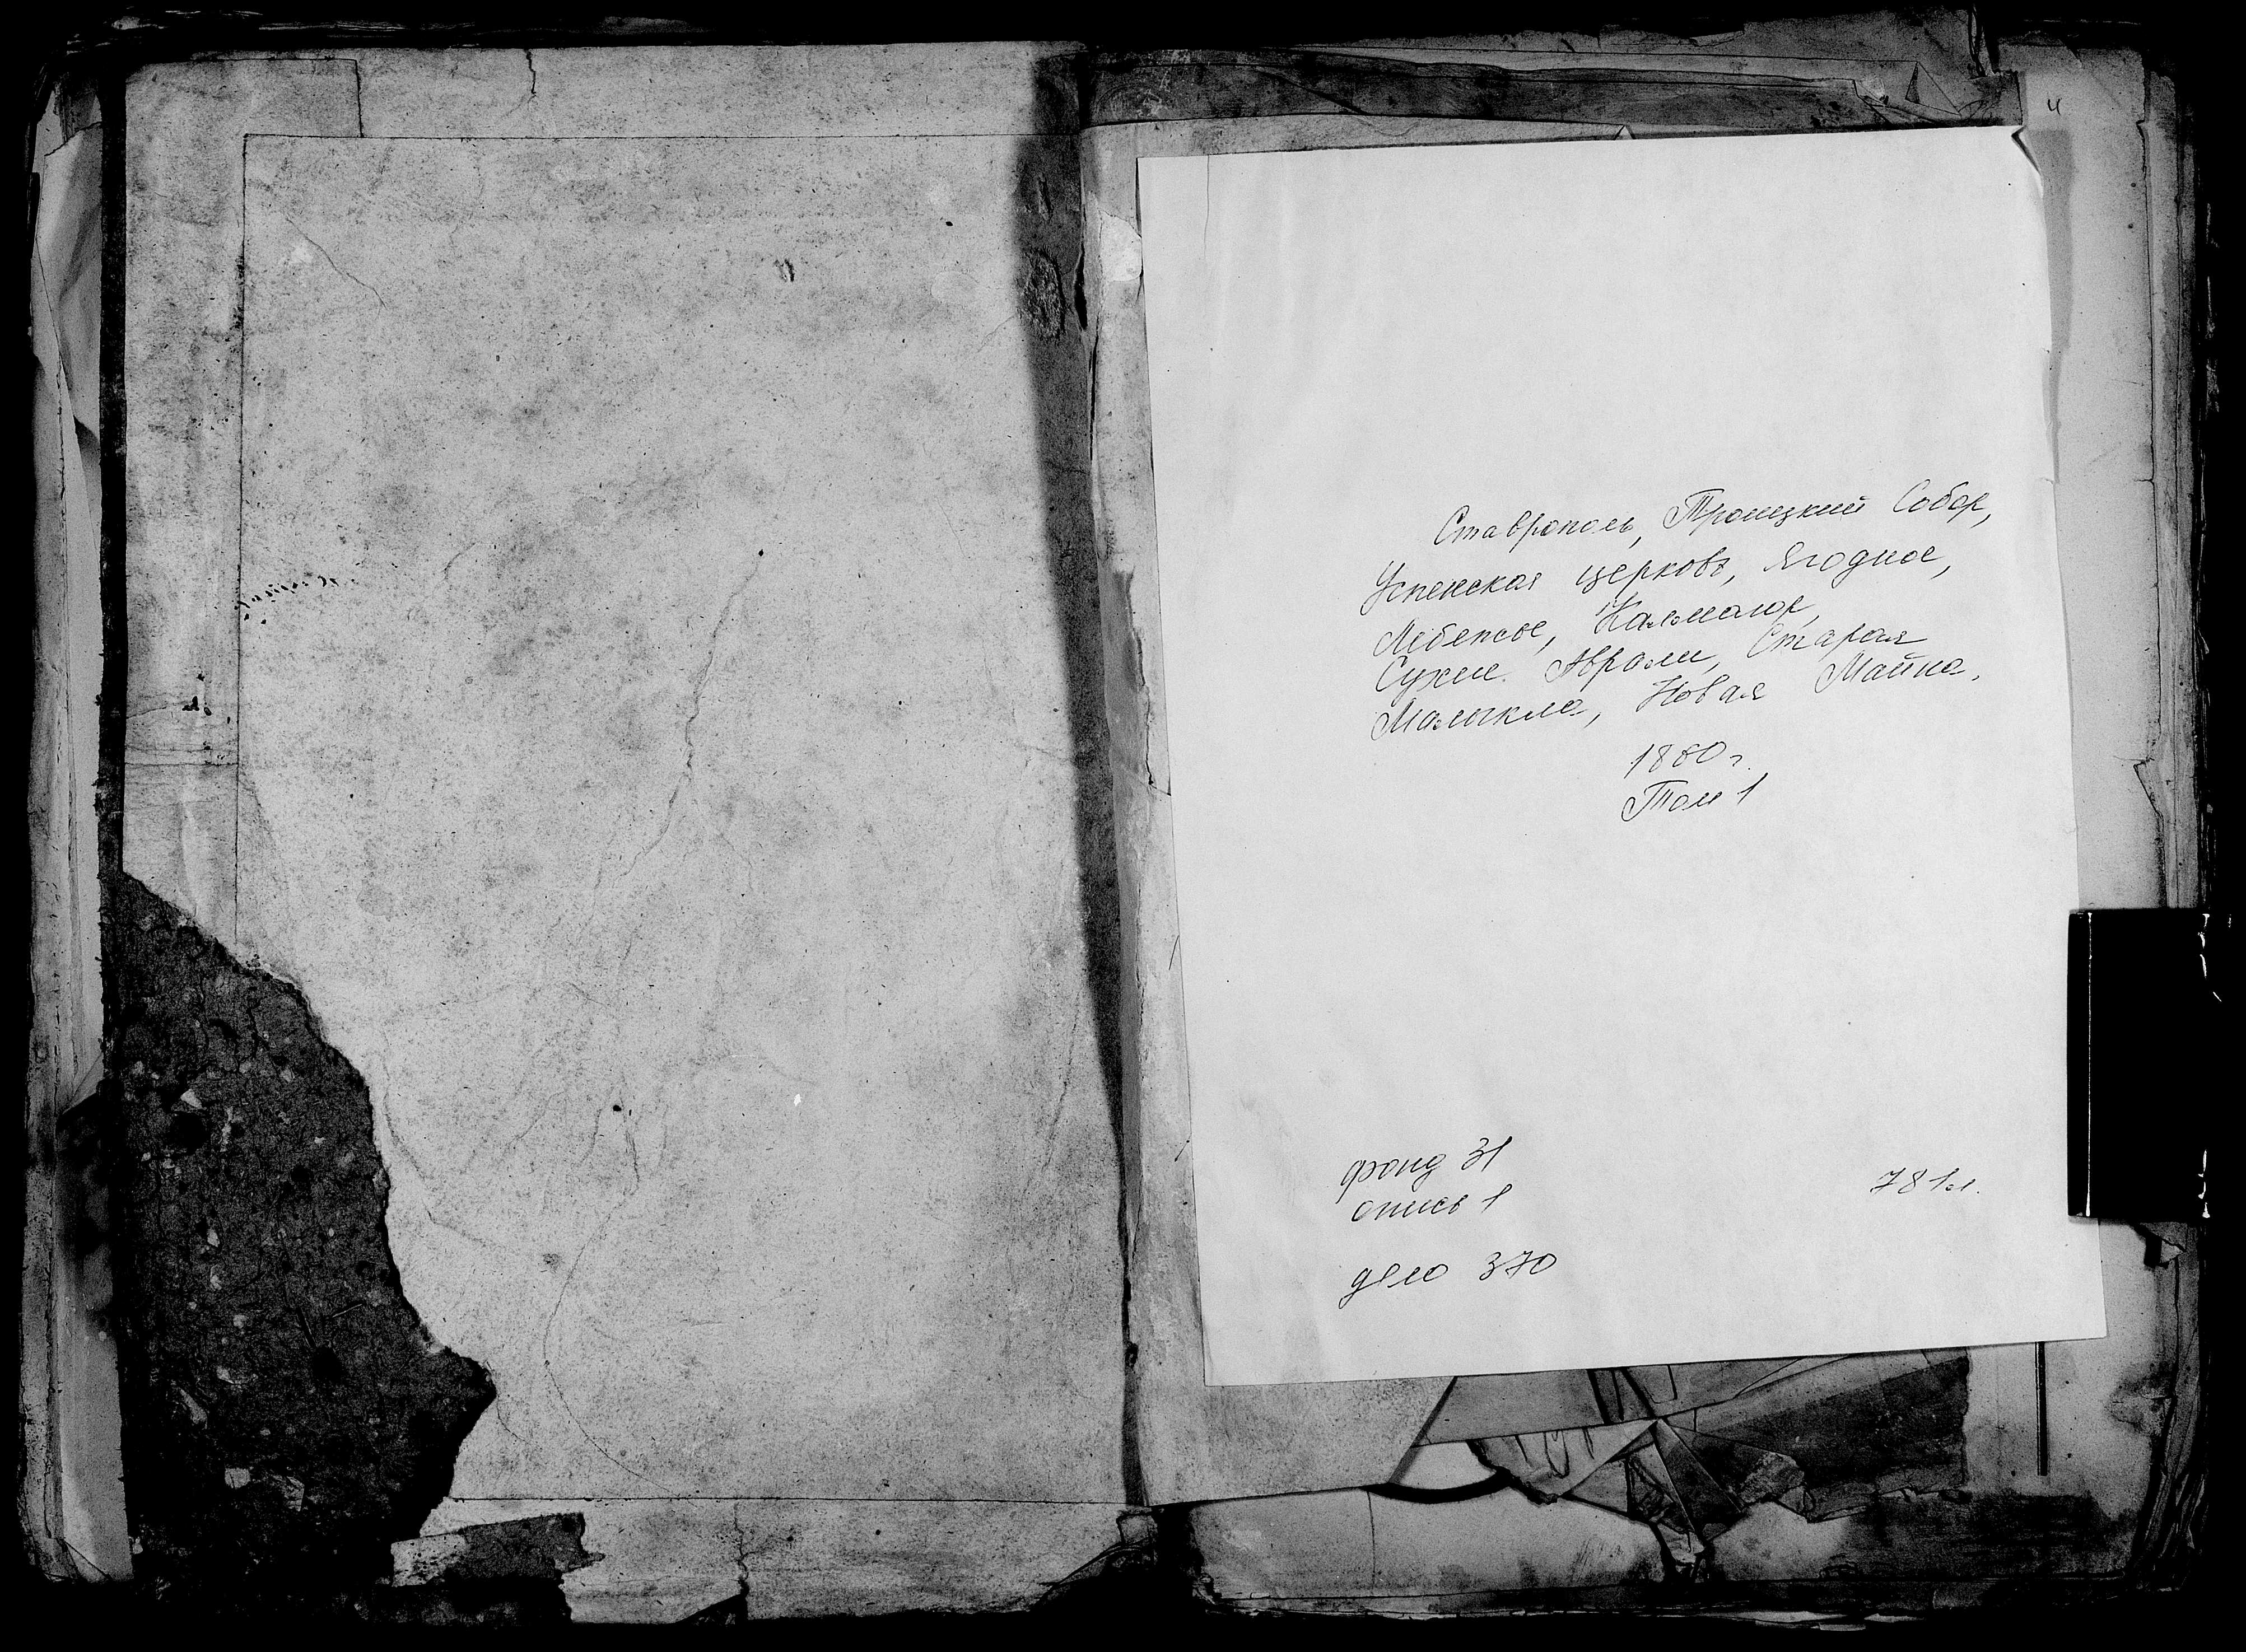 Ставрополь, Троицкий Собор,
Успенская церковь, Ягодное,
Лебяжье, Кальмаюр,
Сухие Аврали, Старая
Малыкла, Новая Майна.
1880 г.
Том 1
фонд 31
опись 1
781 л.
дело 370